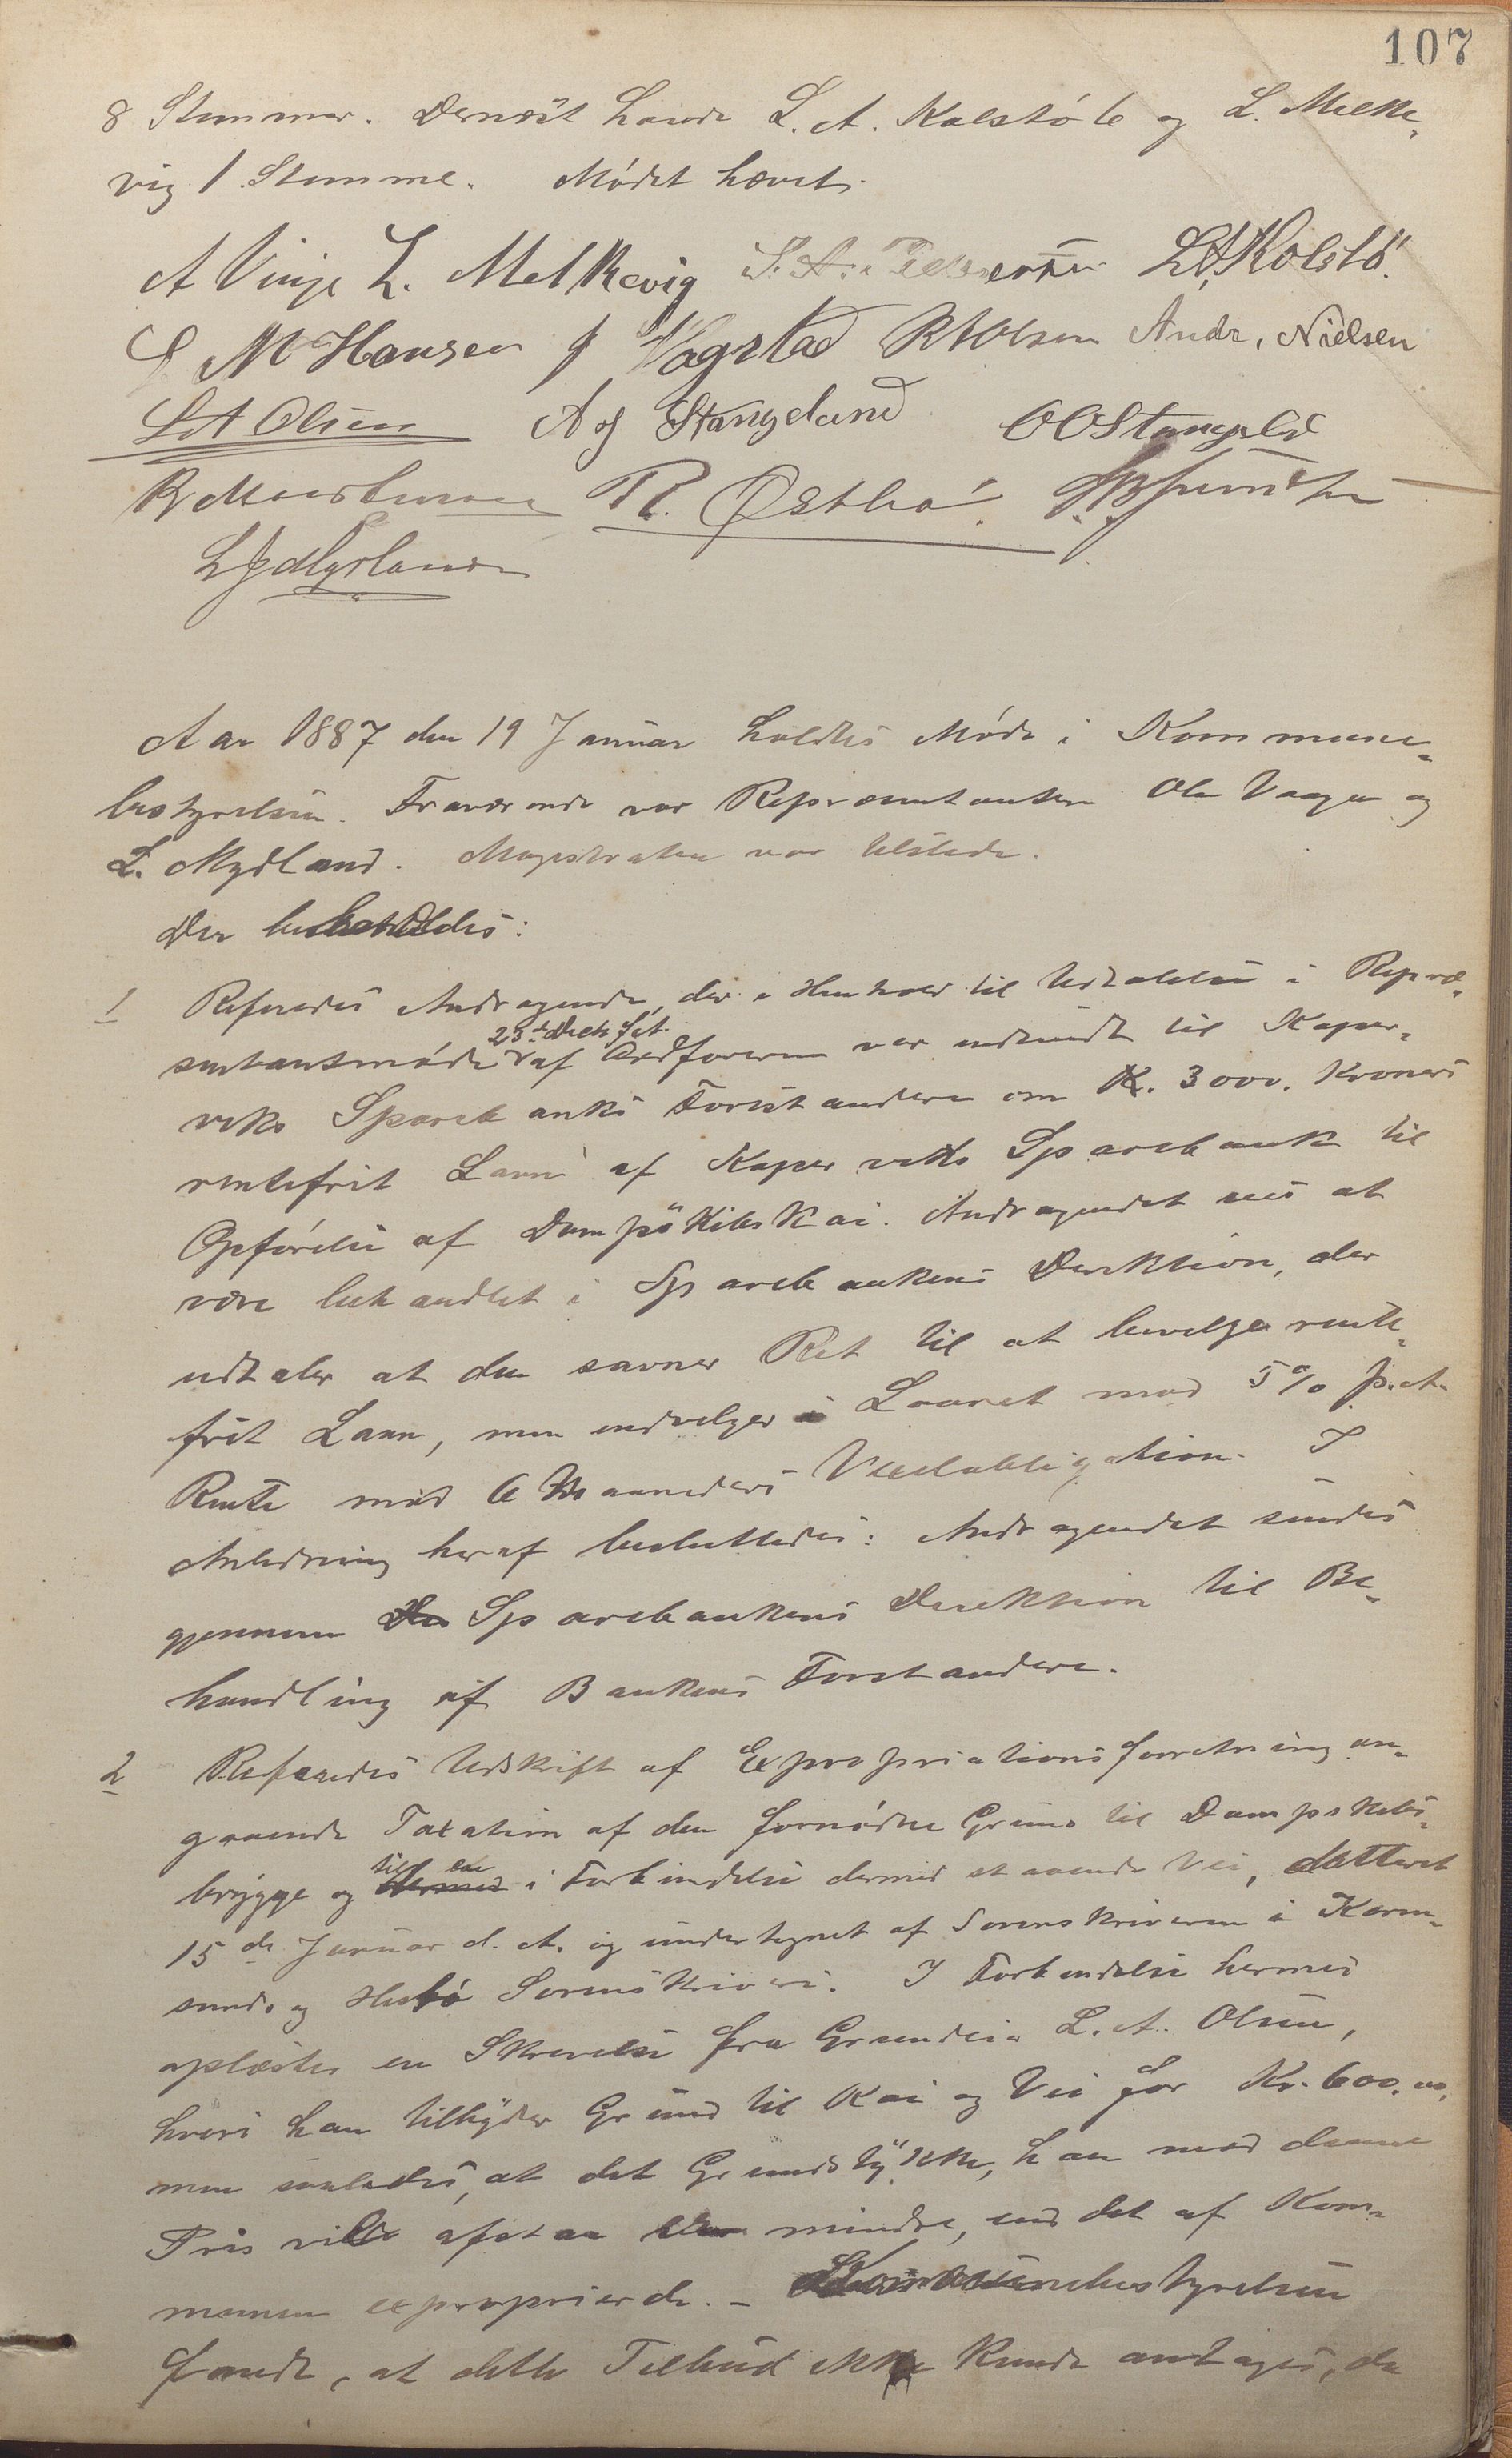 107
8 Stemmer. Dernæst havde L. A. Kolstø 6 og L. Melke-
vig 1 Stemme. Mødet hævet.
A Vinje L. Melkevig L. A. Kolstø.
M Hansen J Vagstad R Olsen Andr. Nielsen
L A Olsen A J Stangeland O O Stangeld
R. Østbø
L J Mydland
Aar 1887 den 19 Januar holdtes Møde i Kommune-
bestyrelsen. Fraværende var Repræsentanten Ole Vaage og
L. Mydland. Magistraten var tilstede.
Der behandledes:
1 Referedes Andragende, der i Henhold til Udtalelse i Repræ-
sentantmøde 23de Decb f. A. af Ordføreren var indsendt til Koper-
viks Sparebanks Forstandere om K. 3000. Kroners
rentefrit Laan af Koperviks Sparebank til
Opførelse af Dampskibskai. Andragendet sees at
være behandlet i Sparebankens Direktion, der
udtaler at den savner Ret til at bevilge rente-
frit Laan, men indvilger i Laanet mod 5% p. A.
Rente mod 6 Maaneders Vexelobligation. I
Anledning heraf besluttedes: Andragendet sendes
gjennem Sparebankens Direktion til Be-
handling af Bankens Forstandere.
2 Referedes Udskrift af Expropriationsforretning an-
gaaende Taxation af den fornødne Grund til Dampskibs-
brygge og til en i Forbindelse dermed staaende Vei, datteret
15de Januar d. A. og undertegnet af Sorenskriveren i Karm-
sunds og Hesbø Sorenskriveri. I Forbindelse hermed
oplæstes en Skrivelse fra Grundeier L. A. Olsen,
hvori han tilbyder Grund til Kai og Vei for Kr. 600.00,
men saaledes, at det Grundstykke, han mod denne
Pris vilde afstaa mindre, end det af Kom-
munen exproprierede. - Kommunebestyrelsen
fandt, at dette Tilbud ikke kunde antages, da